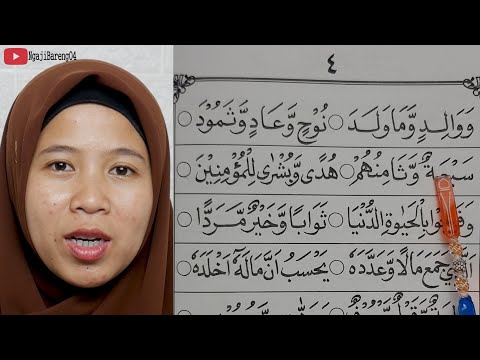 NgajiBareng04
٤
وَوَالِدٍ وَّمَا وَلَدَ ○ نُوْحٍ وَّعَادٍ وَّثَمُوْدَ ○
سَبْعَةٌ وَّثَامِنُهُمْ ○ هُدًى وَّبُشْرٰى لِلْمُؤْمِنِيْنَ ○
وَفَرِحُوْا بِالْحَيٰوةِ الدُّنْيَا ○ ثَوَابًا وَّخَيْرٌ مَّرَدًّا ○
اَلَّذِيْ جَمَعَ مَالًا وَّعَدَّدَهٗ ○ يَحْسَبُ اَنَّ مَالَهٗٓ اَخْلَدَهٗ ○